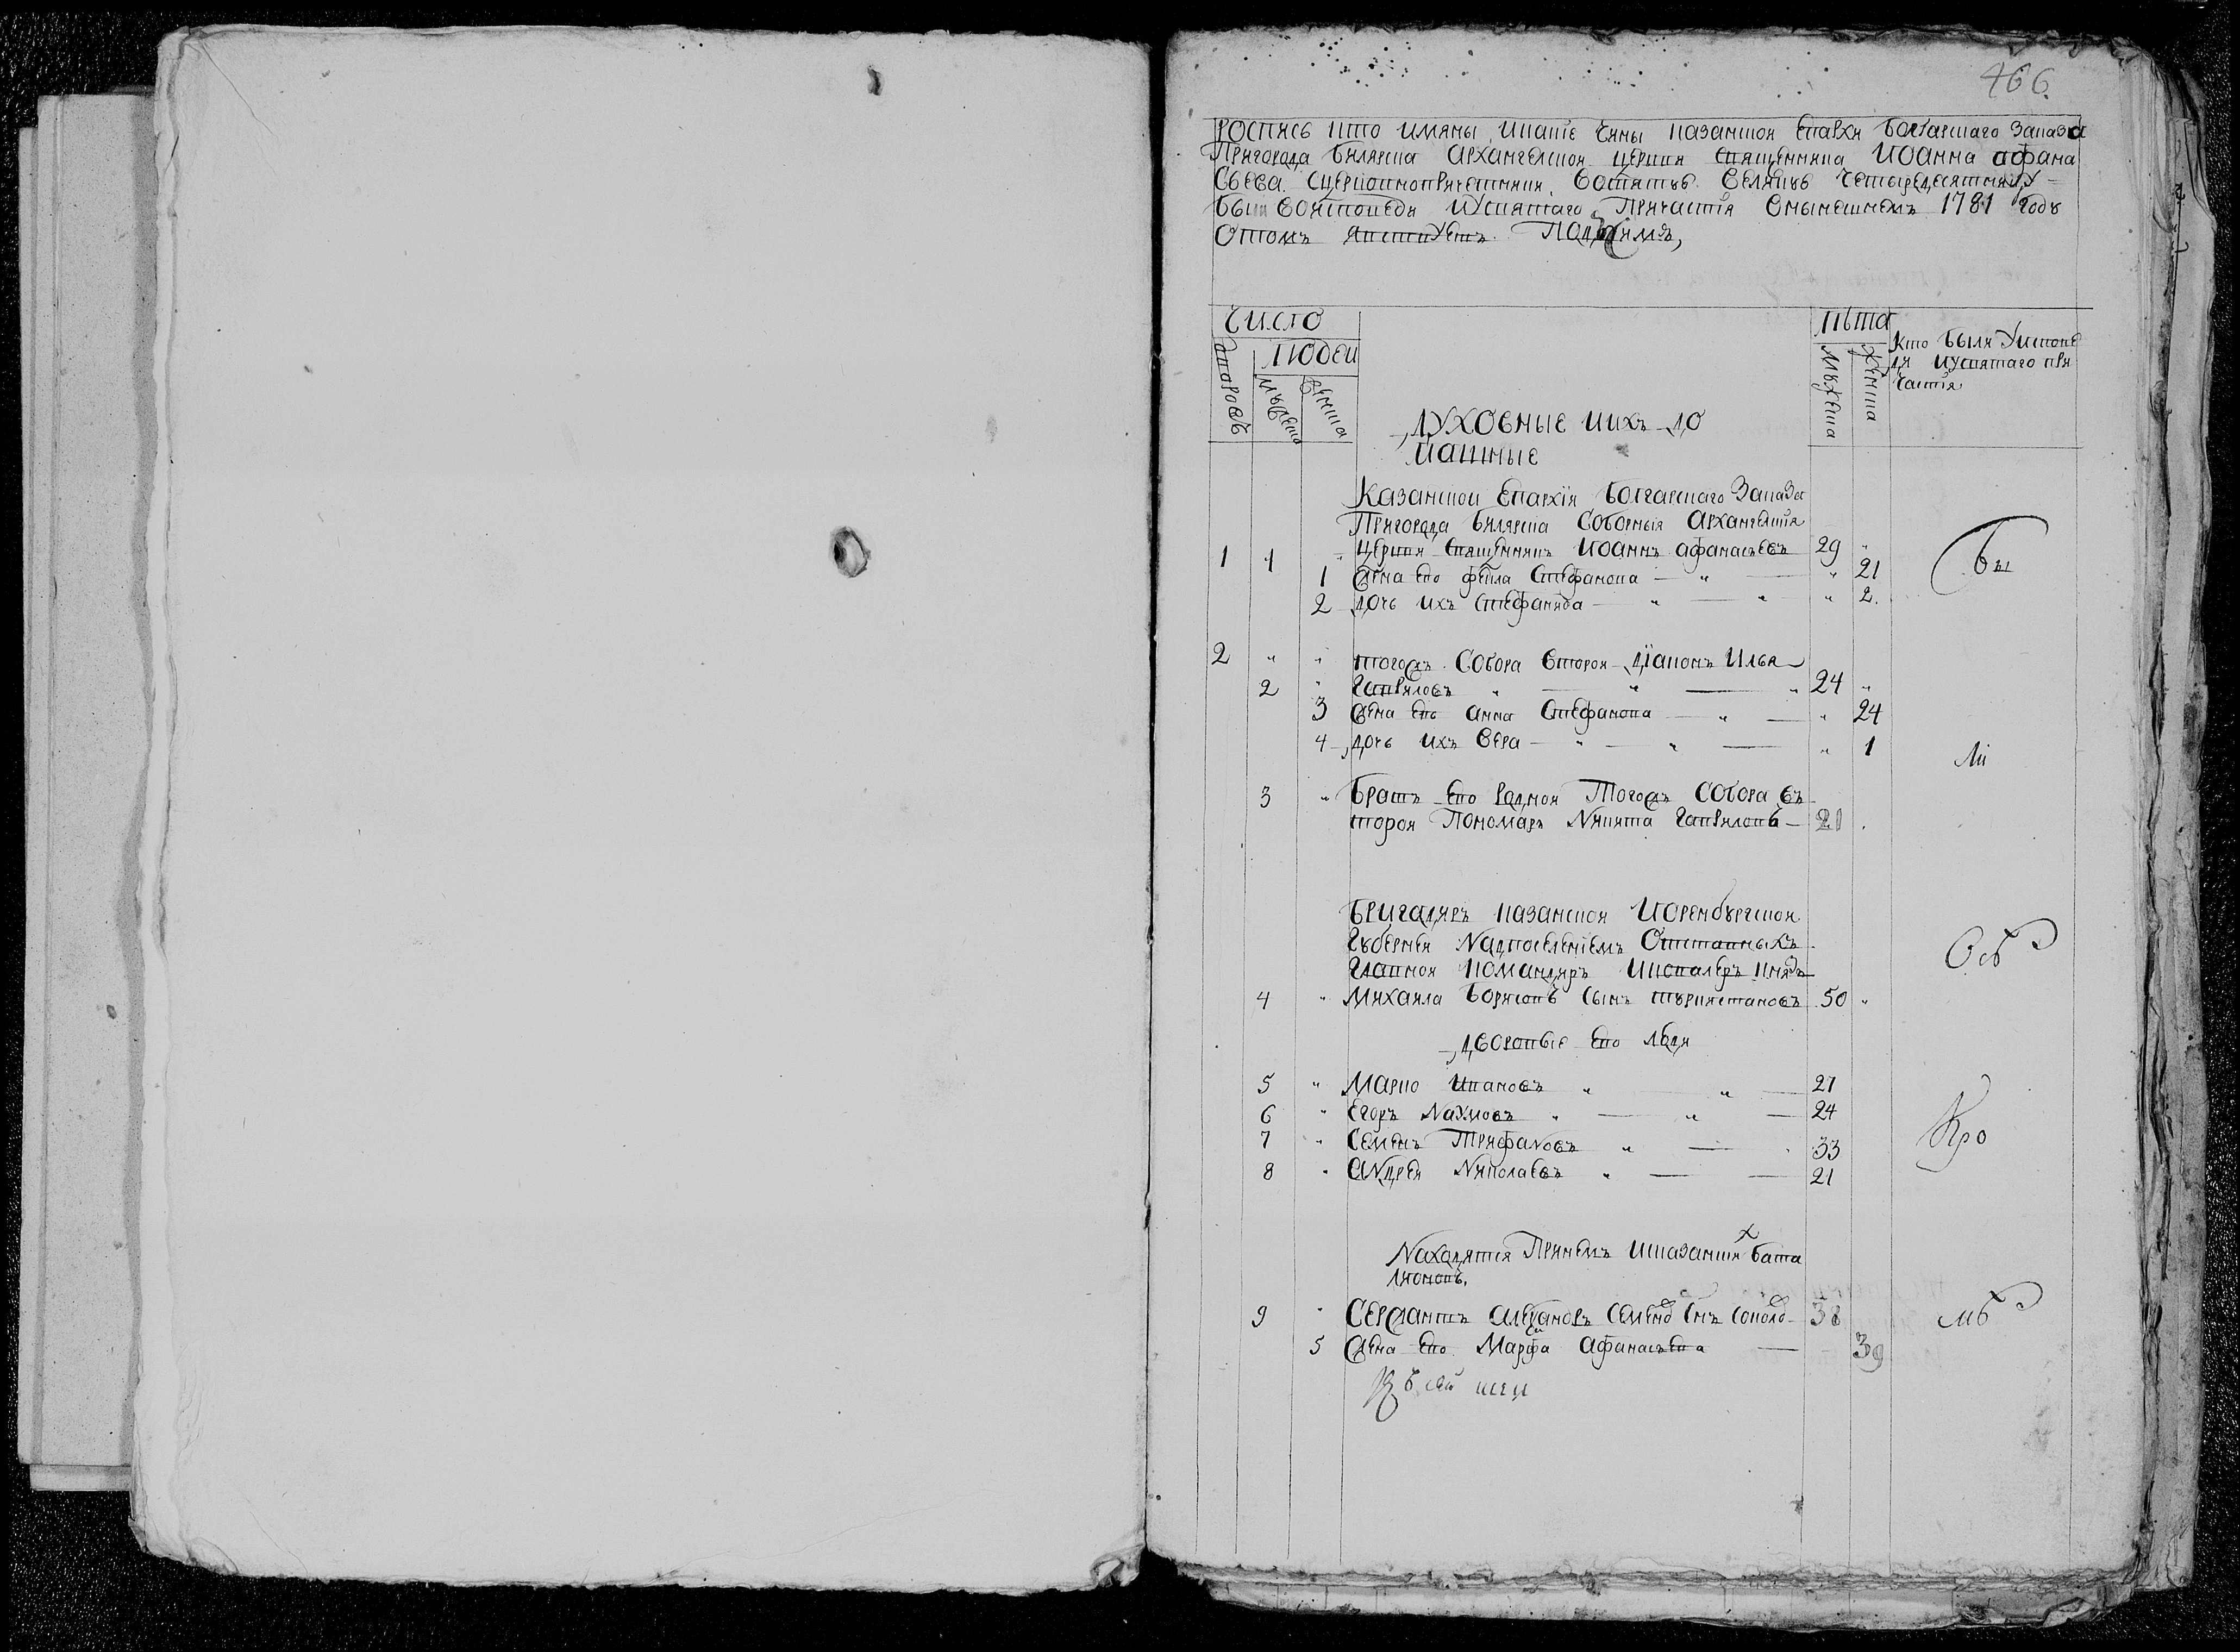 466
Роспись кто имяны и какие чины казанской епархи болгарскаго заказа
Пригорода Билярска Архангелской церкви священника Иоанна Афана
сьева с церковнопричетники. во святыя великия четыредесятницу
были во исповеди и у святаго причастия в нынешнем 1781 году
о том явствует под сим,
Число
Лѣта
Людей
дворовъ
мужеска
женска
мужеска
женска
Кто были у испове
ди и у святаго при
частия
Духовные и ихъ до
машные
Казанской Епархїи Болгарскаго Заказа
Пригорода Билярска Соборныя Архангелския
1 1 " церкви священникъ Иоаннъ Афанасьевъ 29 "
1 Жена его Фекла Стефанова — " — " 21
2 дочь ихъ Стефанида — " — " " 2.
Бы
2 " " тогожъ Собора второй дїаконъ Илья
2 " Гавриловъ " — " — " 24 "
3 Жена его Анна Стефанова — " — " 24
4 дочь ихъ Вера — " — " — " 1
ли
3 " Братъ его родной Тогожъ Собора в
торой Пономарь Никита Гавриловъ — 21
Бригадиръ казанской и Оренбургской
Губерней Над поселениемъ Отставныхъ
Главной командиръ и кавалеръ князь
4 " Михаила Борисовъ сынъ туркистановъ 50 "
Осб
дворовые его люди
5 " Марко Ивановъ " " — 27
6 " Егоръ Наумовъ " — " — 24
7 " Семенъ Трифановъ " — 33
8 " Андрей Николаевъ " — — 21
Кро
Находятся При немъ ис казанских бата
лионовъ,
9 " Сержантъ Алехандръ Семеновъ снъ Соколов 38
5 Жена его Марфа Афанасьева — 39
мб